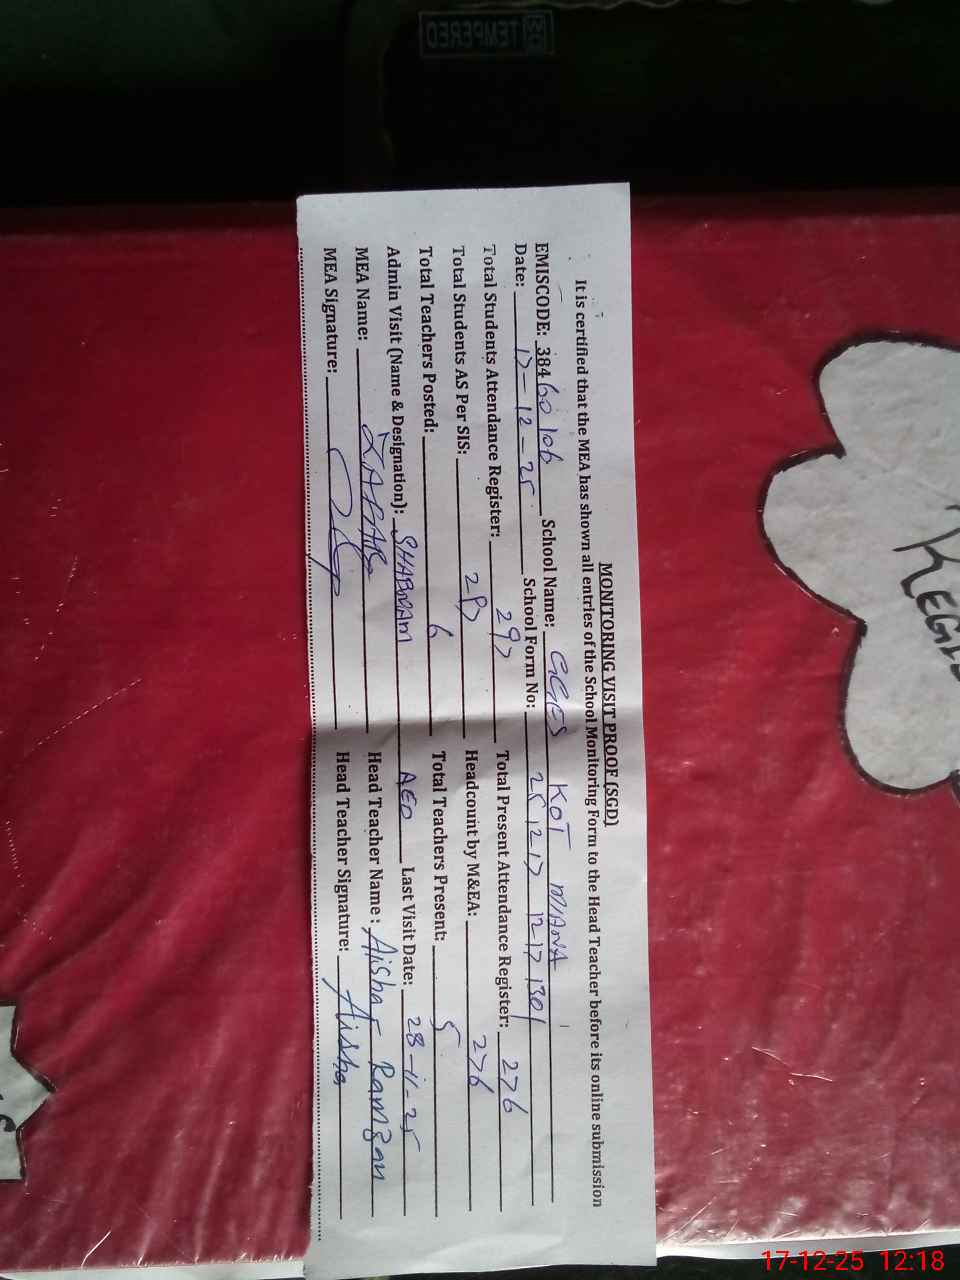 TEMPERED
MONITORING VISIT PROOF (SGD)
It is certified that the MEA has shown all entries of the School Monitoring Form to the Head Teacher before its online submission
EMISCODE: 38460106 School Name: GGES KOT MIANA
Date: 17-12-25 School Form No: 25 12 17 12 17 1301
Total Students Attendance Register: 297 Total Present Attendance Register: 276
Total Students AS Per SIS: 297 Headcount by M&EA: 276
Total Teachers Posted: 6 Total Teachers Present: 5
Admin Visit (Name & Designation): SHABNAM AEO Last Visit Date: 28-11-25
MEA Name: Head Teacher Name : Aisha Ramzan
MEA Signature: Head Teacher Signature: Aisha
17-12-25 12:18